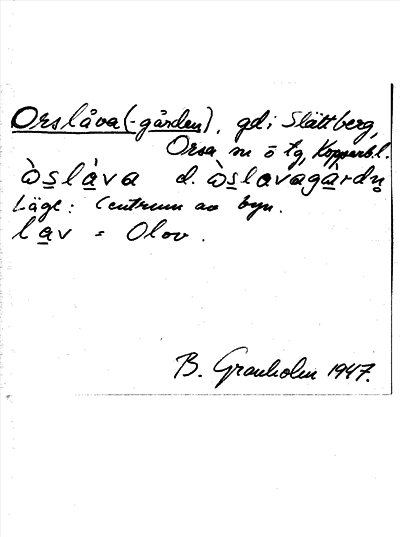 Orslåva (-gården), gd i Slättberg,
Orsa sn o tg, Kopparb. l.
òslàva d. òslavagàrdn̥
Läge: Centrum av byn.
lav = Olov.
B. Granholm 1947.